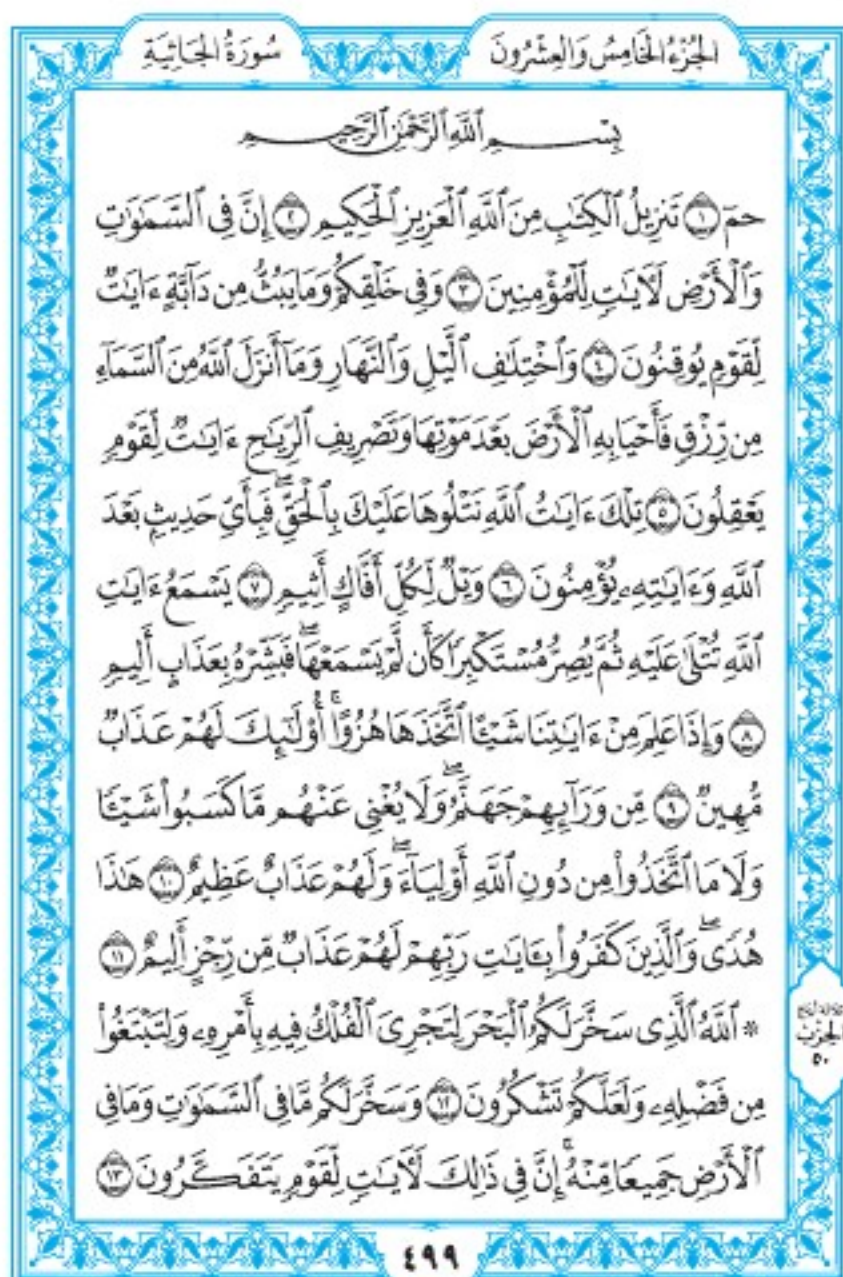 الجُزْءُ الخَامِسُ وَالعِشْرُونَ
سُورَةُ الجَاثِيَةِ
بِسْمِ ٱللَّهِ ٱلرَّحْمَٰنِ ٱلرَّحِيمِ
حمٓ ١ تَنزِيلُ ٱلْكِتَٰبِ مِنَ ٱللَّهِ ٱلْعَزِيزِ ٱلْحَكِيمِ ٢ إِنَّ فِى ٱلسَّمَٰوَٰتِ
وَٱلْأَرْضِ لَءَايَٰتٍ لِّلْمُؤْمِنِينَ ٣ وَفِى خَلْقِكُمْ وَمَا يَبُثُّ مِن دَآبَّةٍ ءَايَٰتٌ
لِّقَوْمٍ يُوقِنُونَ ٤ وَٱخْتِلَٰفِ ٱلَّيْلِ وَٱلنَّهَارِ وَمَآ أَنزَلَ ٱللَّهُ مِنَ ٱلسَّمَآءِ
مِن رِّزْقٍ فَأَحْيَا بِهِ ٱلْأَرْضَ بَعْدَ مَوْتِهَا وَتَصْرِيفِ ٱلرِّيَٰحِ ءَايَٰتٌ لِّقَوْمٍ
يَعْقِلُونَ ٥ تِلْكَ ءَايَٰتُ ٱللَّهِ نَتْلُوهَا عَلَيْكَ بِٱلْحَقِّ ۖ فَبِأَىِّ حَدِيثٍۭ بَعْدَ
ٱللَّهِ وَءَايَٰتِهِۦ يُؤْمِنُونَ ٦ وَيْلٌ لِّكُلِّ أَفَّاكٍ أَثِيمٍ ٧ يَسْمَعُ ءَايَٰتِ
ٱللَّهِ تُتْلَىٰ عَلَيْهِ ثُمَّ يُصِرُّ مُسْتَكْبِرًا كَأَن لَّمْ يَسْمَعْهَا ۖ فَبَشِّرْهُ بِعَذَابٍ أَلِيمٍ
٨ وَإِذَا عَلِمَ مِنْ ءَايَٰتِنَا شَيْـًٔا ٱتَّخَذَهَا هُزُوًا ۚ أُو۟لَٰٓئِكَ لَهُمْ عَذَابٌ
مُّهِينٌ ٩ مِّن وَرَآئِهِمْ جَهَنَّمُ ۖ وَلَا يُغْنِى عَنْهُم مَّا كَسَبُوا۟ شَيْـًٔا
وَلَا مَا ٱتَّخَذُوا۟ مِن دُونِ ٱللَّهِ أَوْلِيَآءَ ۖ وَلَهُمْ عَذَابٌ عَظِيمٌ ١٠ هَٰذَا
هُدًى ۖ وَٱلَّذِينَ كَفَرُوا۟ بِـَٔايَٰتِ رَبِّهِمْ لَهُمْ عَذَابٌ مِّن رِّجْزٍ أَلِيمٌ ١١
۞ ٱللَّهُ ٱلَّذِى سَخَّرَ لَكُمُ ٱلْبَحْرَ لِتَجْرِىَ ٱلْفُلْكُ فِيهِ بِأَمْرِهِۦ وَلِتَبْتَغُوا۟
مِن فَضْلِهِۦ وَلَعَلَّكُمْ تَشْكُرُونَ ١٢ وَسَخَّرَ لَكُم مَّا فِى ٱلسَّمَٰوَٰتِ وَمَا فِى
ٱلْأَرْضِ جَمِيعًا مِّنْهُ ۚ إِنَّ فِى ذَٰلِكَ لَءَايَٰتٍ لِّقَوْمٍ يَتَفَكَّرُونَ ١٣
الحِزْب
٥٠
٤٩٩